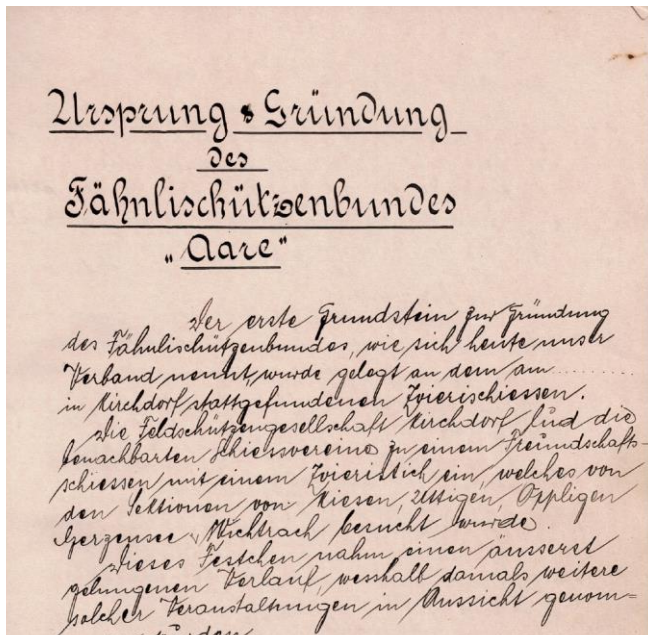 Ursprung & Gründung
des
Fähnlischützenbundes
„Aare"
Der erste Grundstein zur Gründung
des Fähnlischützenbundes, wie sich heute unser
Verband nennt, wurde gelegt an dem am ..........
in Kirchdorf stattgefundenen Zvierischiessen.
Die Feldschützengesellschaft Kirchdorf lud die
benachbarten Schiessvereine zu einem Freundschafts-
schiessen mit einem Zvieristich ein, welches von
den Sektionen von Kiesen, Uttigen, Oppligen
Gerzensee & Wichtrach besucht wurde.
Dieses Festchen nahm einen äusserst
gelungenen Verlauf, wesshalb damals weitere
solcher Veranstaltungen in Aussicht genom=